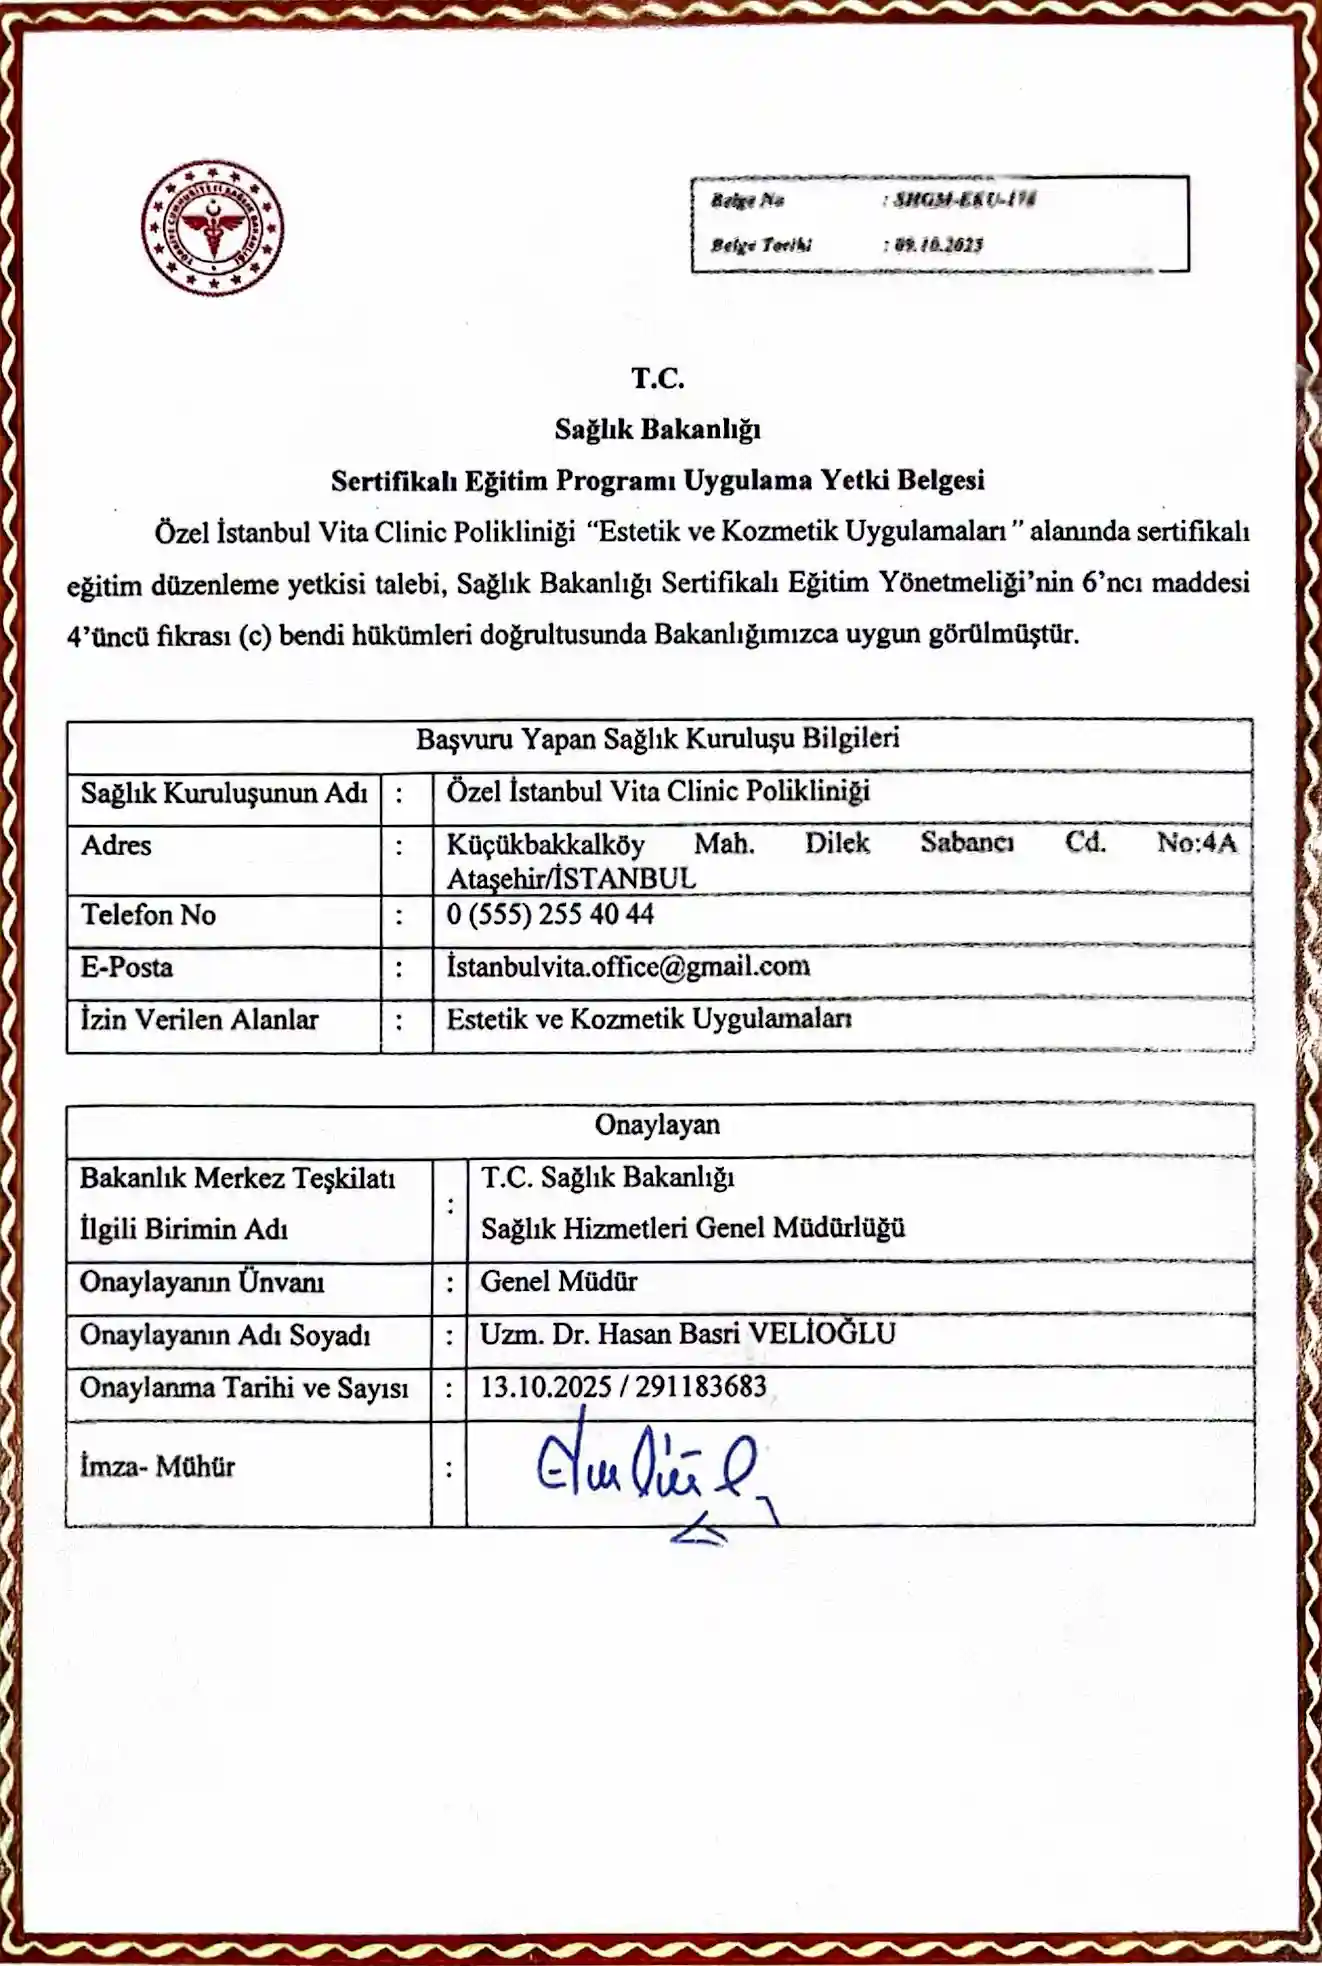 TÜRKİYE CUMHURİYETİ SAĞLIK BAKANLIĞI
Belge No : SHGM-EKU-
Belge Tarihi : 09.10.
T.C.
Sağlık Bakanlığı
Sertifikalı Eğitim Programı Uygulama Yetki Belgesi
Özel İstanbul Vita Clinic Polikliniği “Estetik ve Kozmetik Uygulamaları ” alanında sertifikalı
eğitim düzenleme yetkisi talebi, Sağlık Bakanlığı Sertifikalı Eğitim Yönetmeliği’nin 6’ncı maddesi
4’üncü fıkrası (c) bendi hükümleri doğrultusunda Bakanlığımızca uygun görülmüştür.
Başvuru Yapan Sağlık Kuruluşu Bilgileri
Sağlık Kuruluşunun Adı : Özel İstanbul Vita Clinic Polikliniği
Adres : Küçükbakkalköy Mah. Dilek Sabancı Cd. No:4A
Ataşehir/İSTANBUL
Telefon No : 0 (555) 255 40 44
E-Posta : İstanbulvita.office@gmail.com
İzin Verilen Alanlar : Estetik ve Kozmetik Uygulamaları
Onaylayan
Bakanlık Merkez Teşkilatı : T.C. Sağlık Bakanlığı
İlgili Birimin Adı Sağlık Hizmetleri Genel Müdürlüğü
Onaylayanın Ünvanı : Genel Müdür
Onaylayanın Adı Soyadı : Uzm. Dr. Hasan Basri VELİOĞLU
Onaylanma Tarihi ve Sayısı : 13.10.2025 / 291183683
İmza- Mühür :